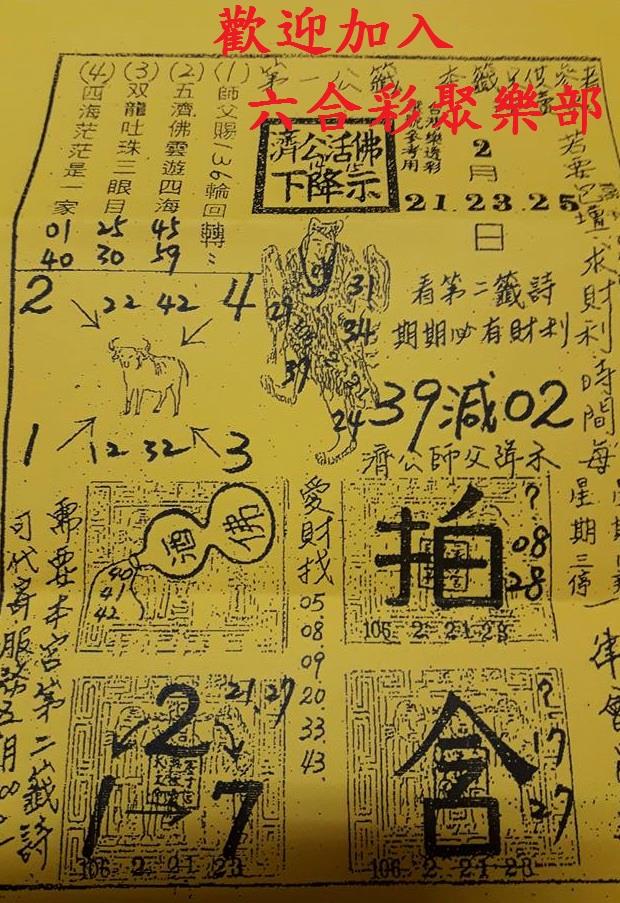 歡迎加入
六合彩聚樂部
第一公籤
濟公活佛
下降示
參考用
2
月
21.23.25
日
(1)師父賜136輪回轉
(2)五濟佛雲遊四海 45 59
(3)双龍吐珠三眼目 25 30
(4)四海茫茫是一家 01 40
2 22 42 4
1 12 32 3
29 31
34
39
24
看第二籤詩
期期必有財利
39減02
濟公師父降示
若要
求財利時間每
星期三停
佛
40
41
42
愛財找
05.08.09.20.33.43.
拍
?
08
28
106.2.21.23
2
21.27
1→7
106.2.21.23
?
17
27
106.2.21.23
需要本宮第二籤詩
可代寄服務